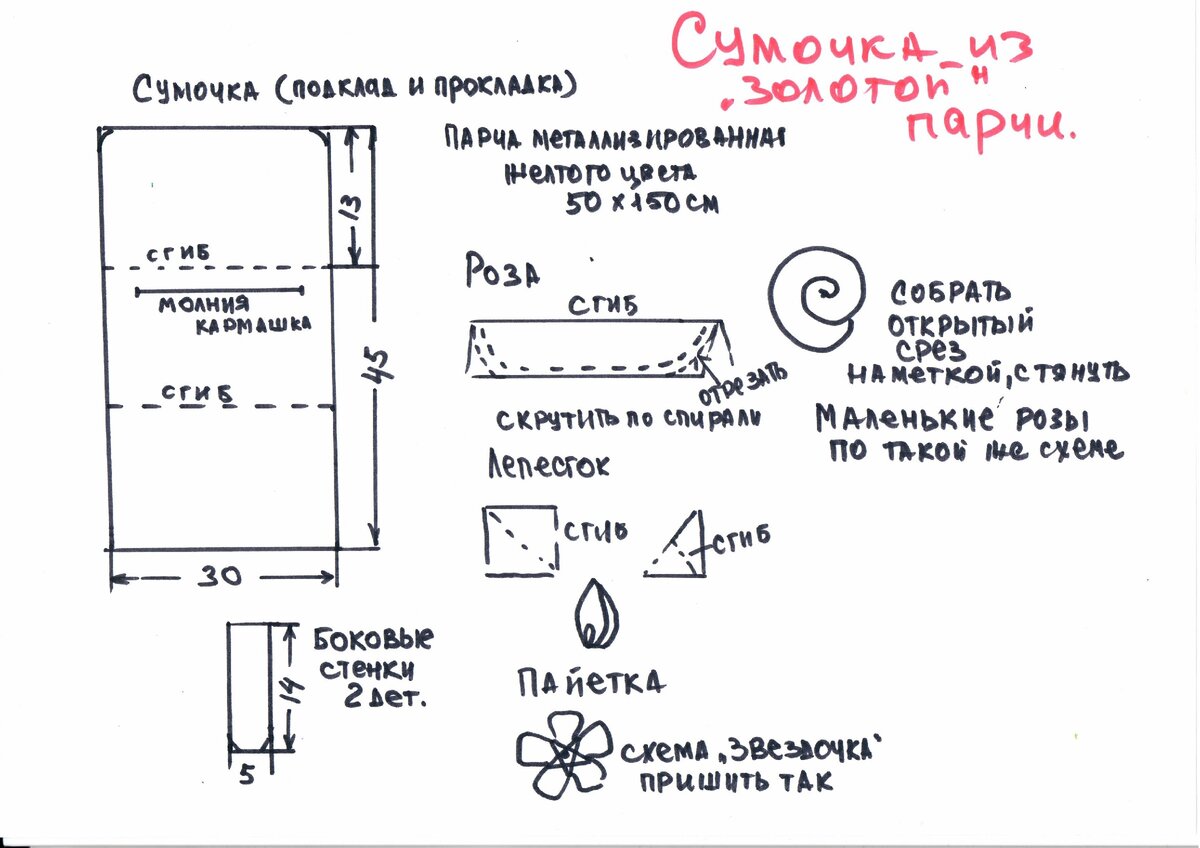 Сумочка из
„золотой"
парчи.
Сумочка (подклад и прокладка)
13
сгиб
молния
кармашка
сгиб
45
30
14
5
Боковые
стенки
2 дет.
Парча металлизированная
желтого цвета
50 x 150 см
Роза
сгиб
отрезать
скрутить по спирали
собрать
открытый
срез
наметкой, стянуть
Маленькие розы
по такой же схеме
Лепесток
сгиб
сгиб
Пайетка
схема „Звездочка"
пришить так